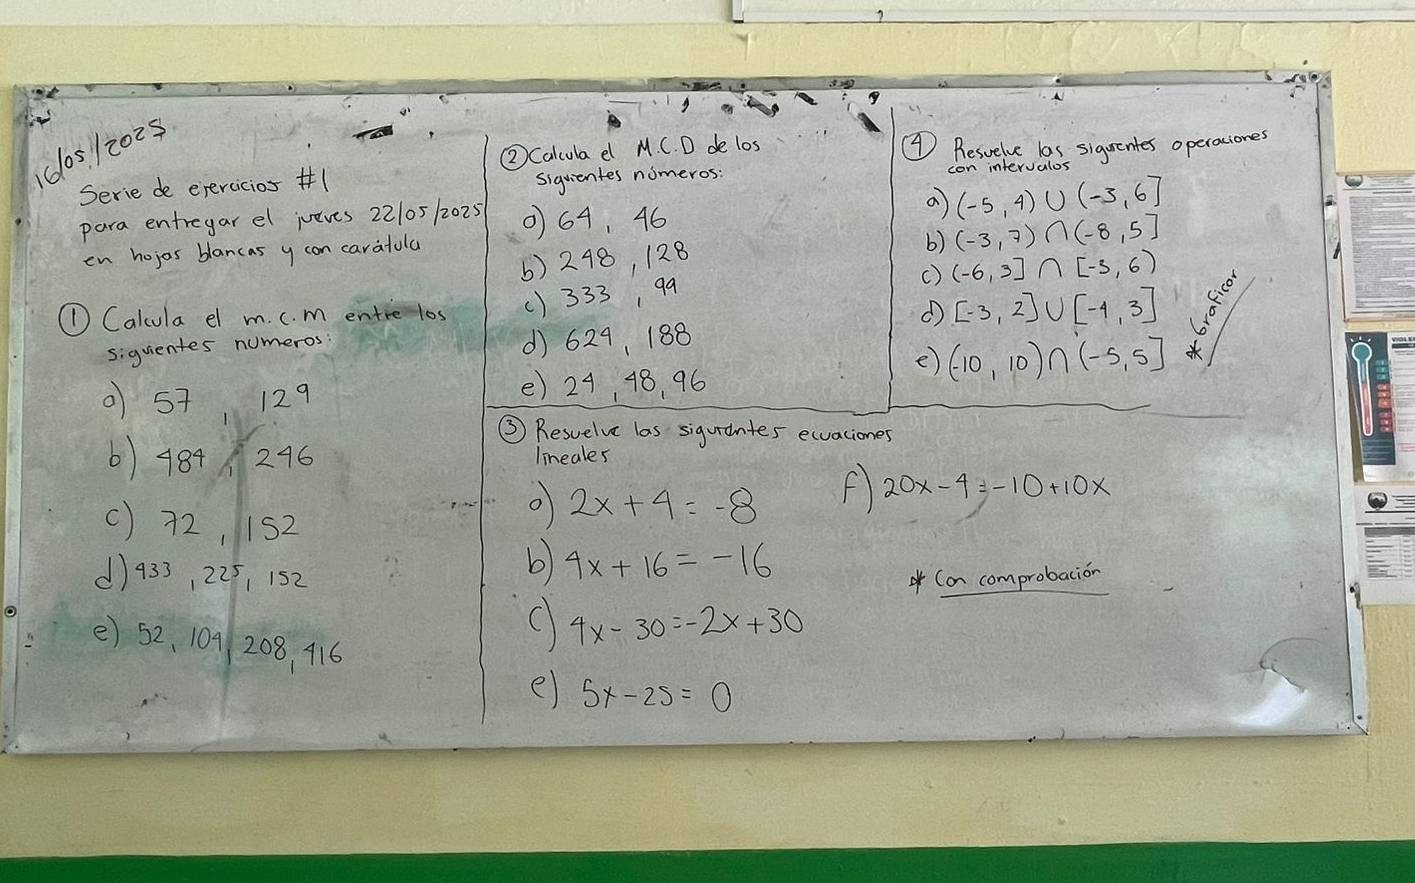 16/05/2025
Serie de ejercicios #1
para entregar el jueves 22/05/2025
en hojas blancas y con carátula
① Calcula el m.c.m entre los
siguientes números:
a) 57, 129
b) 484, 246
c) 72, 152
d) 433, 225, 152
e) 52, 104, 208, 416
② Calcula el M.C.D de los
siguientes números:
a) 64, 46
b) 248, 128
c) 333, 99
d) 624, 188
e) 24, 48, 96
③ Resuelve las siguientes ecuaciones
lineales
a) 2x + 4 = -8
b) 4x + 16 = -16
c) 4x - 30 = -2x + 30
e) 5x - 25 = 0
f) 20x - 4 = -10 + 10x
* Con comprobación
④ Resuelve las siguientes operaciones
con intervalos
a) (-5, 4) ∪ (-3, 6]
b) (-3, 7) ∩ (-8, 5]
c) (-6, 3] ∩ [-5, 6)
d) [-3, 2] ∪ [-4, 3]
e) (-10, 10) ∩ (-5, 5]
* Graficar